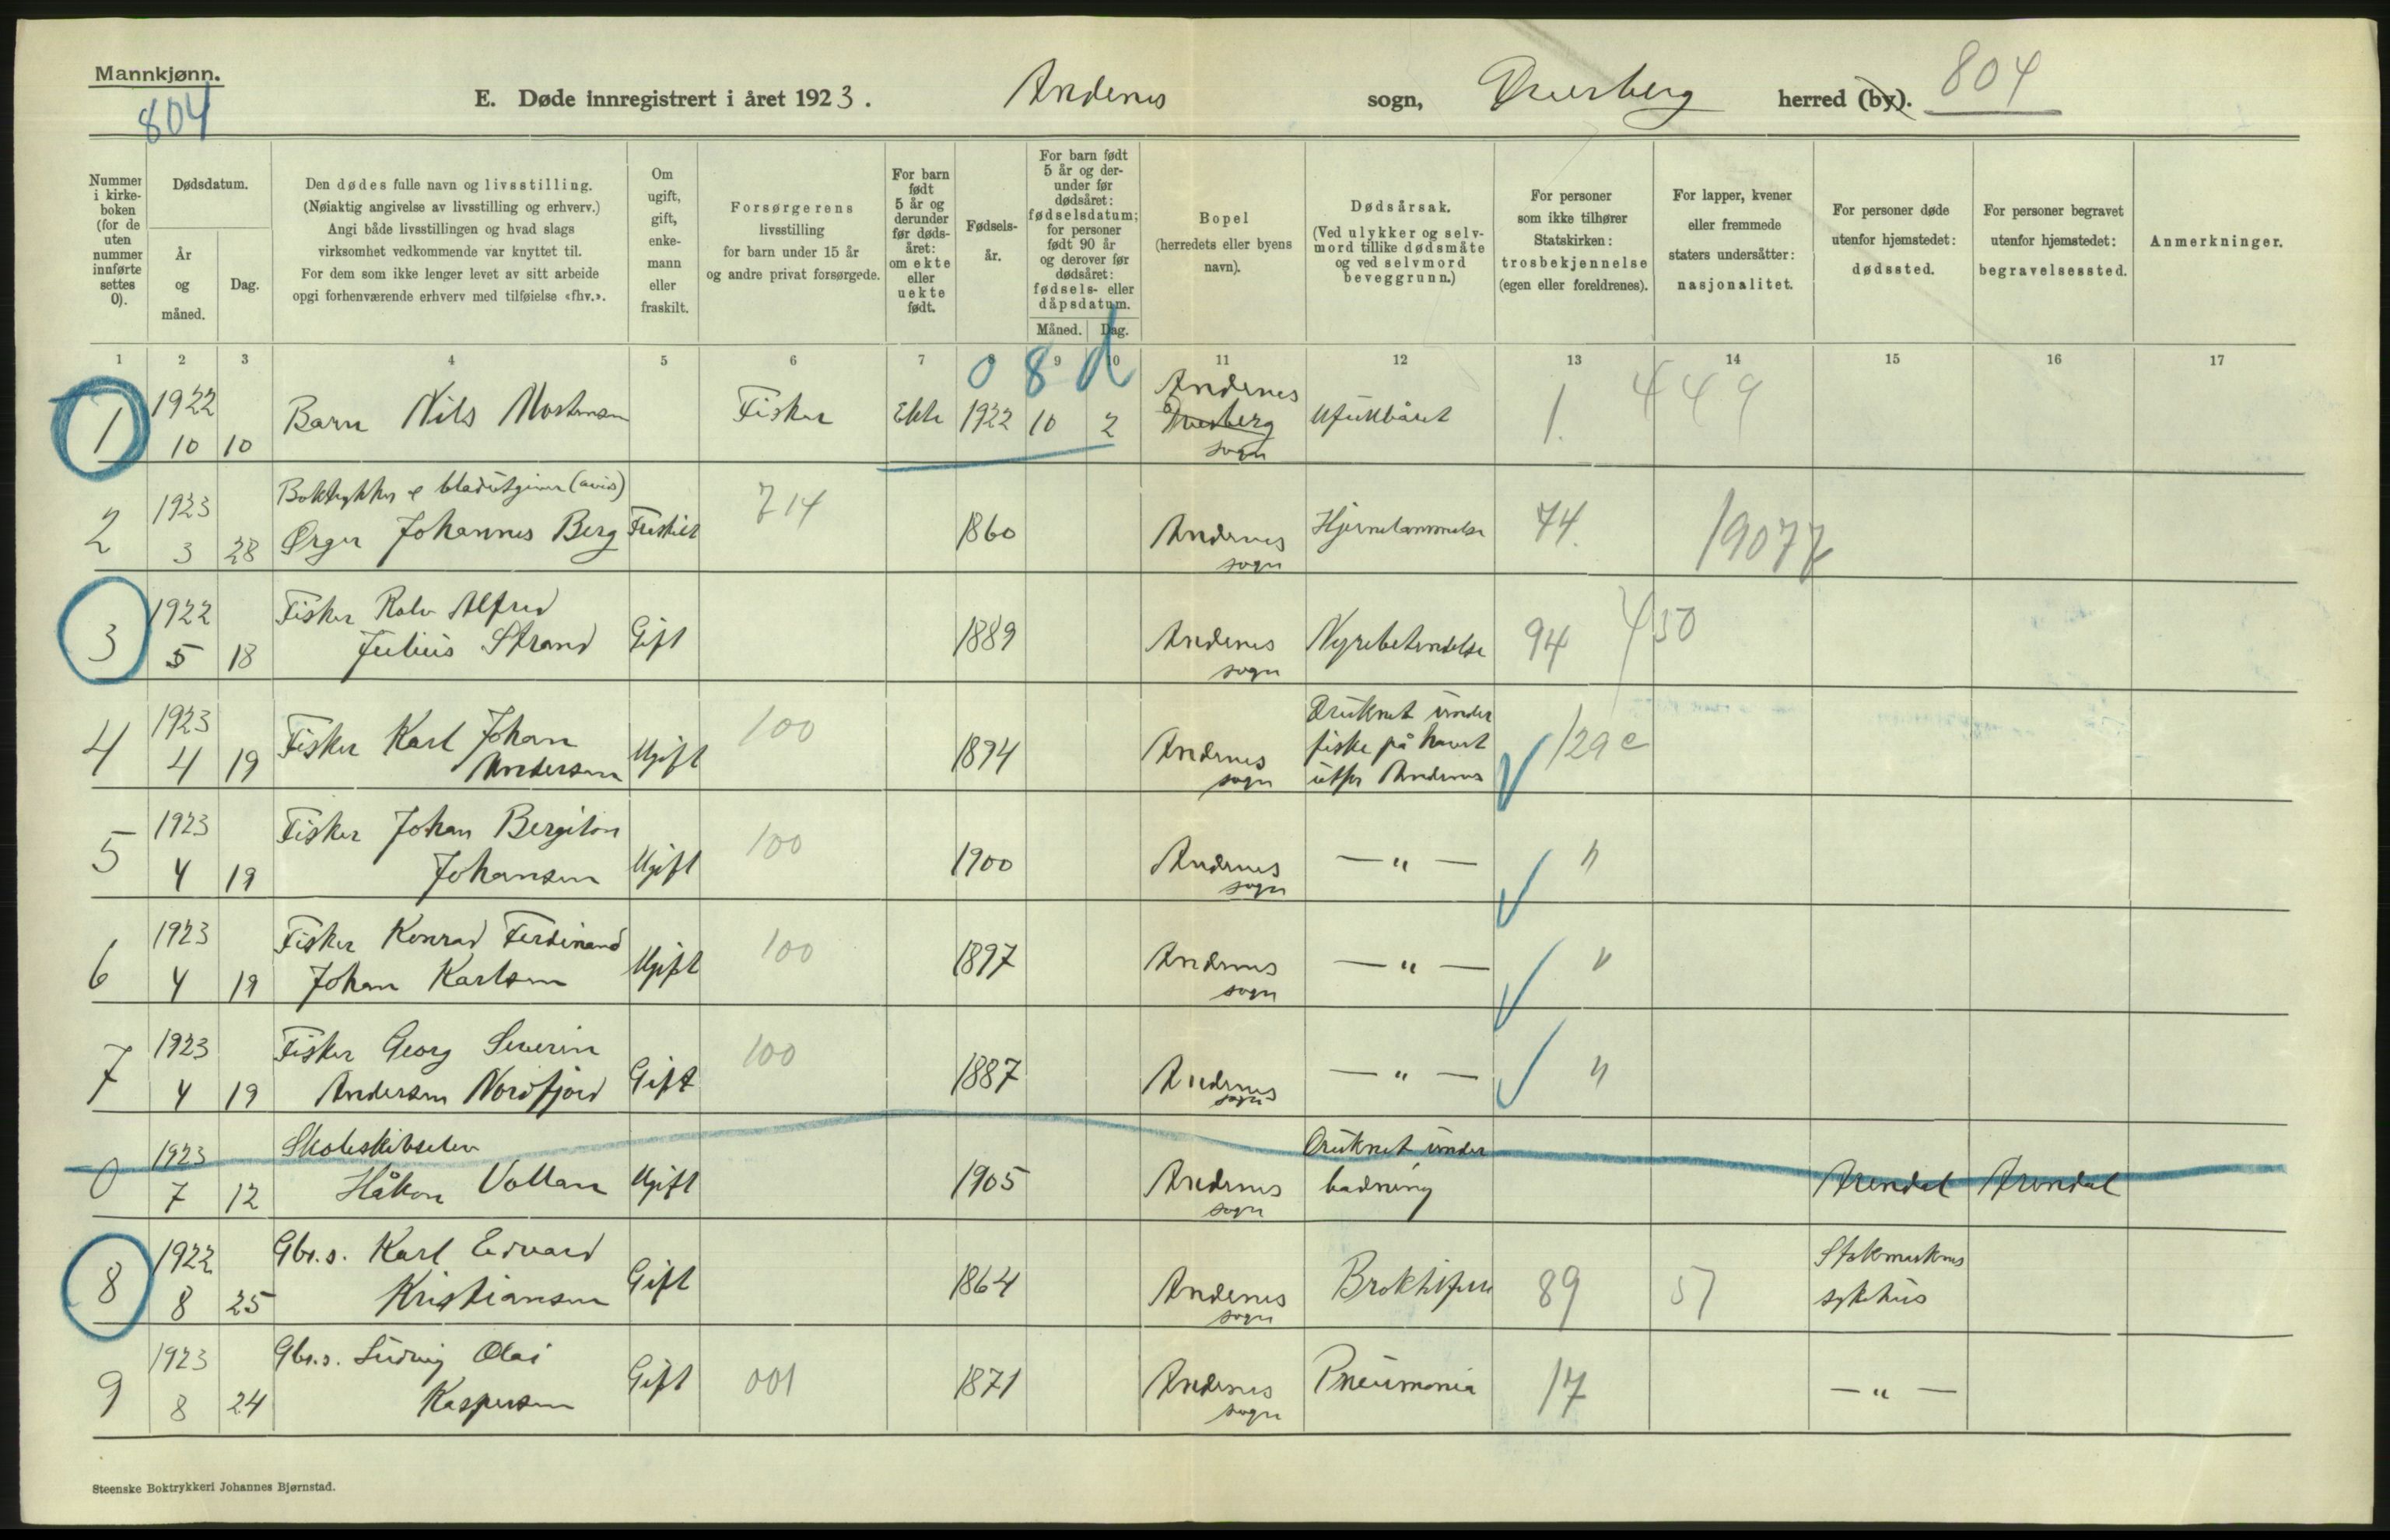 Mannkjønn.
804
E. Døde innregistrert i året 1923.
Andenes sogn, Dverberg herred (by). 804
Nummer i kirke-boken (for de uten nummer innførte settes 0).
Dødsdatum.
År og måned.
Dag.
Den dødes fulle navn og livsstilling.
(Nøiaktig angivelse av livsstilling og erhverv.)
Angi både livsstillingen og hvad slags
virksomhet vedkommende var knyttet til.
For dem som ikke lenger levet av sitt arbeide
opgi forhenværende erhverv med tilføielse «fhv.».
Om ugift, gift, enke-mann eller fraskilt.
Forsørgerens
livsstilling
for barn under 15 år
og andre privat forsørgede.
For barn født 5 år og derunder før døds-året: om ekte eller uekte født.
Fødsels-år.
For barn født 5 år og der-under før dødsåret: fødselsdatum; for personer født 90 år og derover før dødsåret: fødsels- eller dåpsdatum.
Måned. Dag.
Bopel
(herredets eller byens
navn).
Dødsårsak.
(Ved ulykker og selv-
mord tillike dødsmåte
og ved selvmord
beveggrunn.)
For personer
som ikke tilhører
Statskirken:
trosbekjennelse
(egen eller foreldrenes).
For lapper, kvener
eller fremmede
staters undersåtter:
nasjonalitet.
For personer døde
utenfor hjemstedet:
dødssted.
For personer begravet
utenfor hjemstedet:
begravelsessted.
Anmerkninger.
1 2 3 4 5 6 7 8 9 10 11 12 13 14 15 16 17
0 8 d
1 1922 10 10 Barn Nils Mortensen Fisker Ekte 1922 10 2 Andenes Dverberg sogn Ufullbåret 1. 449
2 1923 3 28 Boktrykker & bladutgiver (avis)
Ørger Johannes Berg Fraskilt 714 1860 Andenes sogn Hjernelammelse 74. 19077
3 1922 5 18 Fisker Rolv Alfred
Julius Strand Gift 1889 Andenes sogn Nyrebetendelse 94 450
4 1923 4 19 Fisker Karl Johan
Andersen Ugift 100 1894 Andenes sogn Druknet under
fiske på havet
utfor Andenes 129 c
5 1923 4 19 Fisker Johan Bergiton
Johansen Ugift 100 1900 Andenes sogn — " — "
6 1923 4 19 Fisker Konrad Ferdinand
Johan Karlsen Ugift 100 1897 Andenes sogn — " — "
7 1923 4 19 Fisker Georg Severin
Andersen Nordfjord Gift 100 1887 Andenes sogn — " — "
0 1923 7 12 Skoleskibselev
Håkon Vollan Ugift 1905 Andenes sogn Druknet under
badning Arendal Arendal
8 1922 8 25 Gbr.s. Karl Edvard
Kristiansen Gift 1864 Andenes sogn 89 57 Stokmarknes
sykehus
9 1923 8 24 Gbr.s. Ludvig Olai
Kaspersen Gift 001 1871 Andenes sogn Pneumonia 17 — " —
Steenske Boktrykkeri Johannes Bjørnstad.